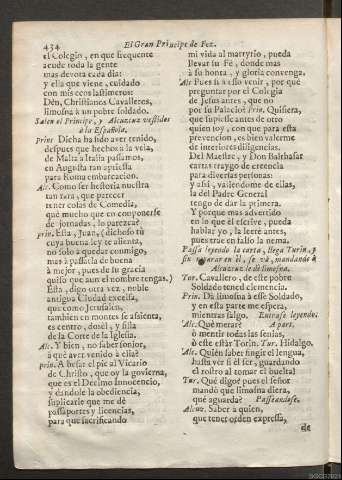 434
El Gran Principe de Fez.
el Colegio, en que frequente
acude toda la gente
mas devota cada dia:
y ella que viene, cuidado
con mis ecos lastimeros:
Dèn, Christianos Cavalleros,
limosna à un pobre soldado.
Salen el Principe, y Alcuzcuz vestidos
à la Española.
Prin. Dicha ha sido aver tenido,
despues que hechos à la vela,
de Malta à Italia passamos,
en Augusta tan aprissa
para Roma embarcacion.
Alc. Como ser historia nuestra
tan rara, que parecer
tener cosas de Comedia,
què mucho que en componerse
de jornadas, lo parezca?
Prin. Esta, Juan, (dichoso tù
cuya buena ley te alienta,
no solo à quedar conmigo,
mas à passarla de buena
à mejor, pues de su gracia
quiso que aun el nombre tengas.)
Esta, digo otra vez, noble
antigua Ciudad excelsa,
que como Jerusalen,
tambien en montes se assienta,
es centro, dosèl, y silla
de la Corte de la Iglesia.
Alc. Y bien, no saber señor,
à què aver venido à ella?
Prin. A besar el pie al Vicario
de Christo, que oy la govierna,
que es el Decimo Innocencio,
y dandole la obediencia,
suplicarle que me dè
passaportes y licencias,
para que sacrificando
mi vida al martyrio, pueda
llevar su Fè, donde mas
à su honra, y gloria convenga.
Alc. Pues si à esso venir, por què
preguntar por el Colegia
de Jesus antes, que no
por su Palacio? Prin. Quisiera,
que supiesse antes de otro
quien soy, con que para esta
prevencion, es bien valerme
de interiores diligencias.
Del Maestre, y Don Balthasar
cartas traygo de creencia
para diversas personas:
y assi, valiendome de ellas,
la del Padre General
tengo de dar la primera.
Y porque mas advertido
en lo que èl escrive, pueda
hablar yo, la leerè antes,
pues trae en falso la nema.
Passa leyendo la carta, llega Turin, y
sin reparar en èl, se và, mandando à
Alcuzcuz le dè limosna.
Tur. Cavallero, de este pobre
Soldado tened clemencia.
Prin. Dà limosna à esse Soldado,
y en esta parte me espera,
mientras salgo. Entrase leyendo.
Alc. Què mirar? A part.
ò mentir todas las señas,
ò este està ser Torin. Tur. Hidalgo.
Alc. Quièn saber fingir el lengua,
hasta ver si èl ser, guardando
el rostro al tomar el buelta!
Tur. Què digo? pues el señor
mandò que limosna diera,
què aguarda? Passeandose.
Alcuz. Saber à quien,
que tener orden expressa,
de